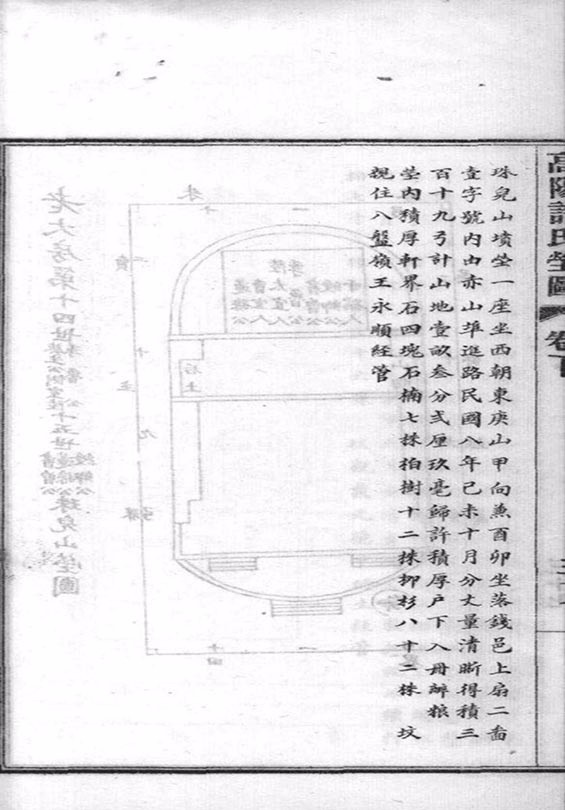 高陽許氏塋圖 卷下
珠兒山墳塋一座坐西朝東庚山甲向兼酉卯坐落錢邑上扇二畨
壹字號內由赤山埠進路民國八年己未十月分丈量清晰得積三
百十九弓計山地壹畝叁分弍厘玖毫歸許積厚戶下入冊辦粮
塋內積厚軒界石四塊石楠七株柏樹十二株柳杉八十二株坟
親住八盤嶺王永順經管